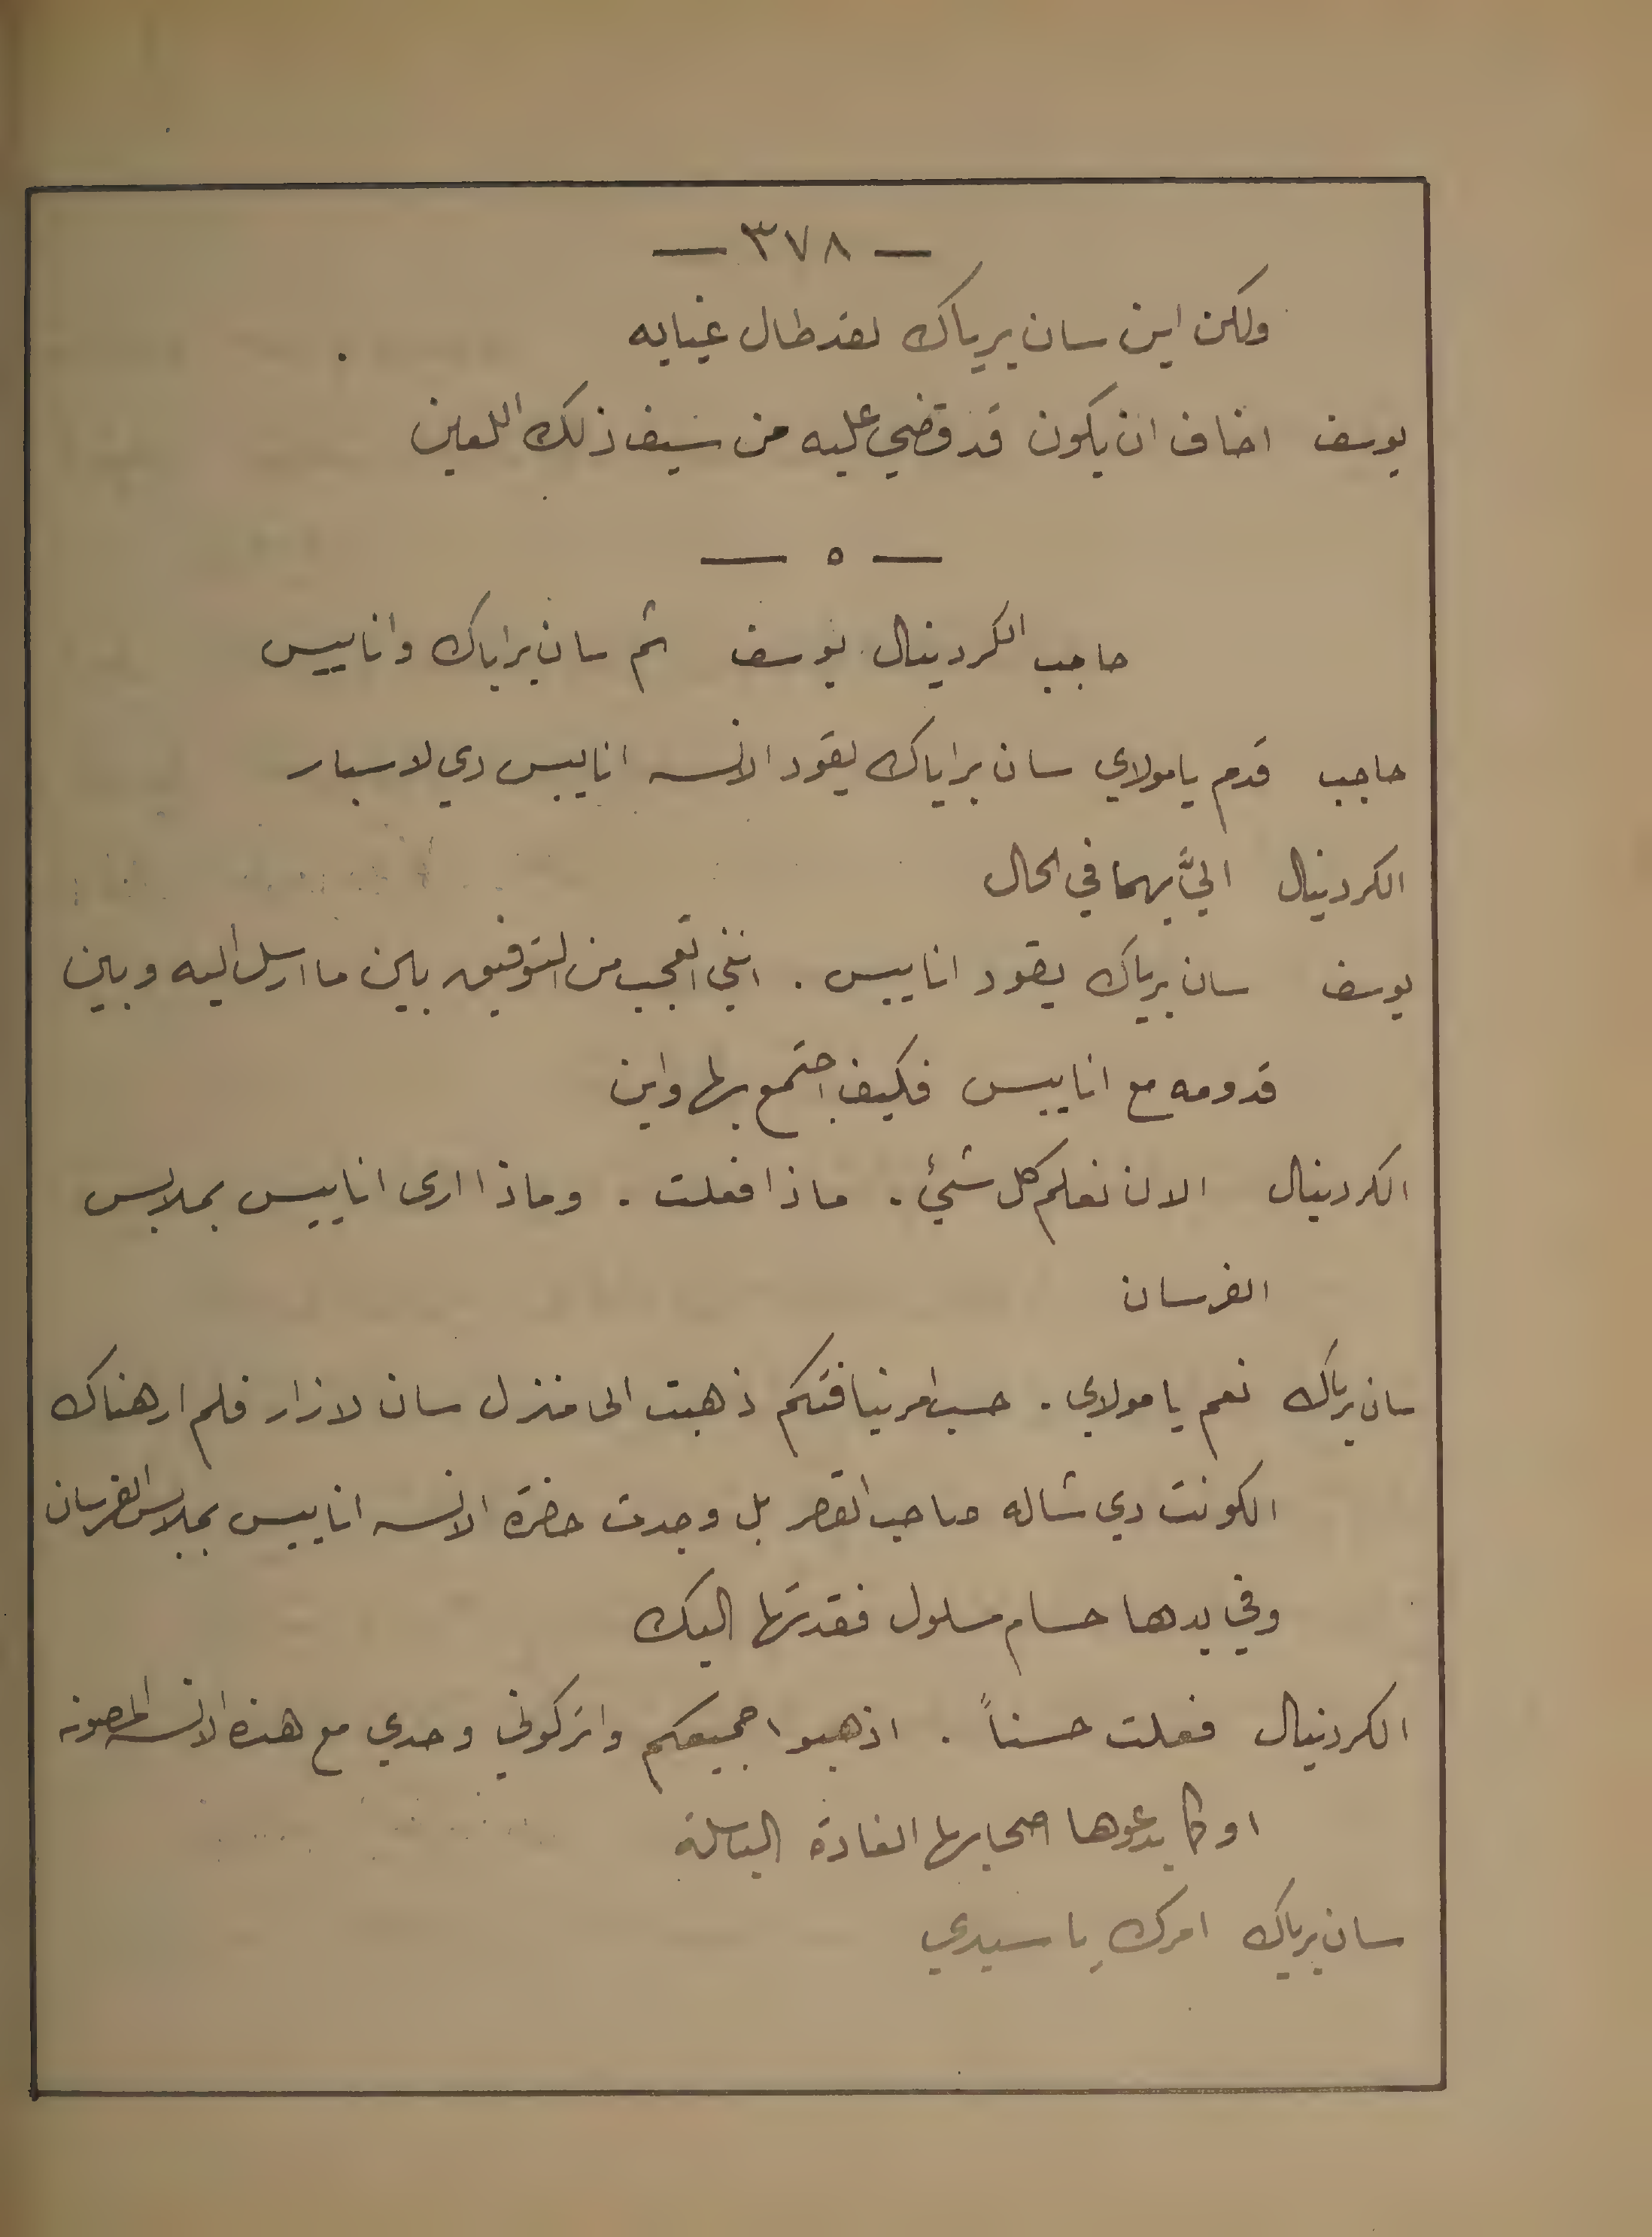 — ٣٧٨ —
ولكن اين سان برياك لقد طال غيابه
يوسف اخاف ان يكون قد قضي عليه من سيف ذلك اللعين
— ٥ —
حاجب الكردينال يوسف ثم سان براياك وانابيس
حاجب قدم يا مولاي سان براياك يقود الانسه انابيس دي لاسبار
الكردينال اليَّ بهما في الحال
يوسف سان برياك يقود انابيس . انني اتعجب من التوفيق بين ما ارسل اليه وبين
قدومه مع انابيس فكيف اجتمع بها واين
الكردينال الان نعلم كل شئ . ماذا فعلت . وماذا ارى انابيس بملابس
الفرسان
سان برياك نعم يا مولاي . حسب امر نيافتكم ذهبت الى منزل سان لازار فلم ار هناك
الكونت دي شاله صاحب القصر بل وجدت حضرة الانسه انابيس بملابس الفرسان
وفي يدها حسام مسلول فقدتها اليك
الكردينال فعلت حسناً . اذهبوا جميعكم واتركوني وحدي مع هذه الانسه المصونه
او كما يدعوها اصحابها الغادة الباسلة
سان برياك امرك يا سيدي